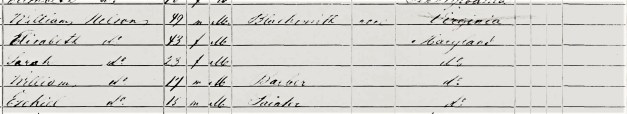 William Nelson 49 m M Blacksmith Virginia
Elizabeth do 43 f M Maryland
Sarah do 23 f M do
William do 17 m M Barber do
Ezekiel do 15 m M do